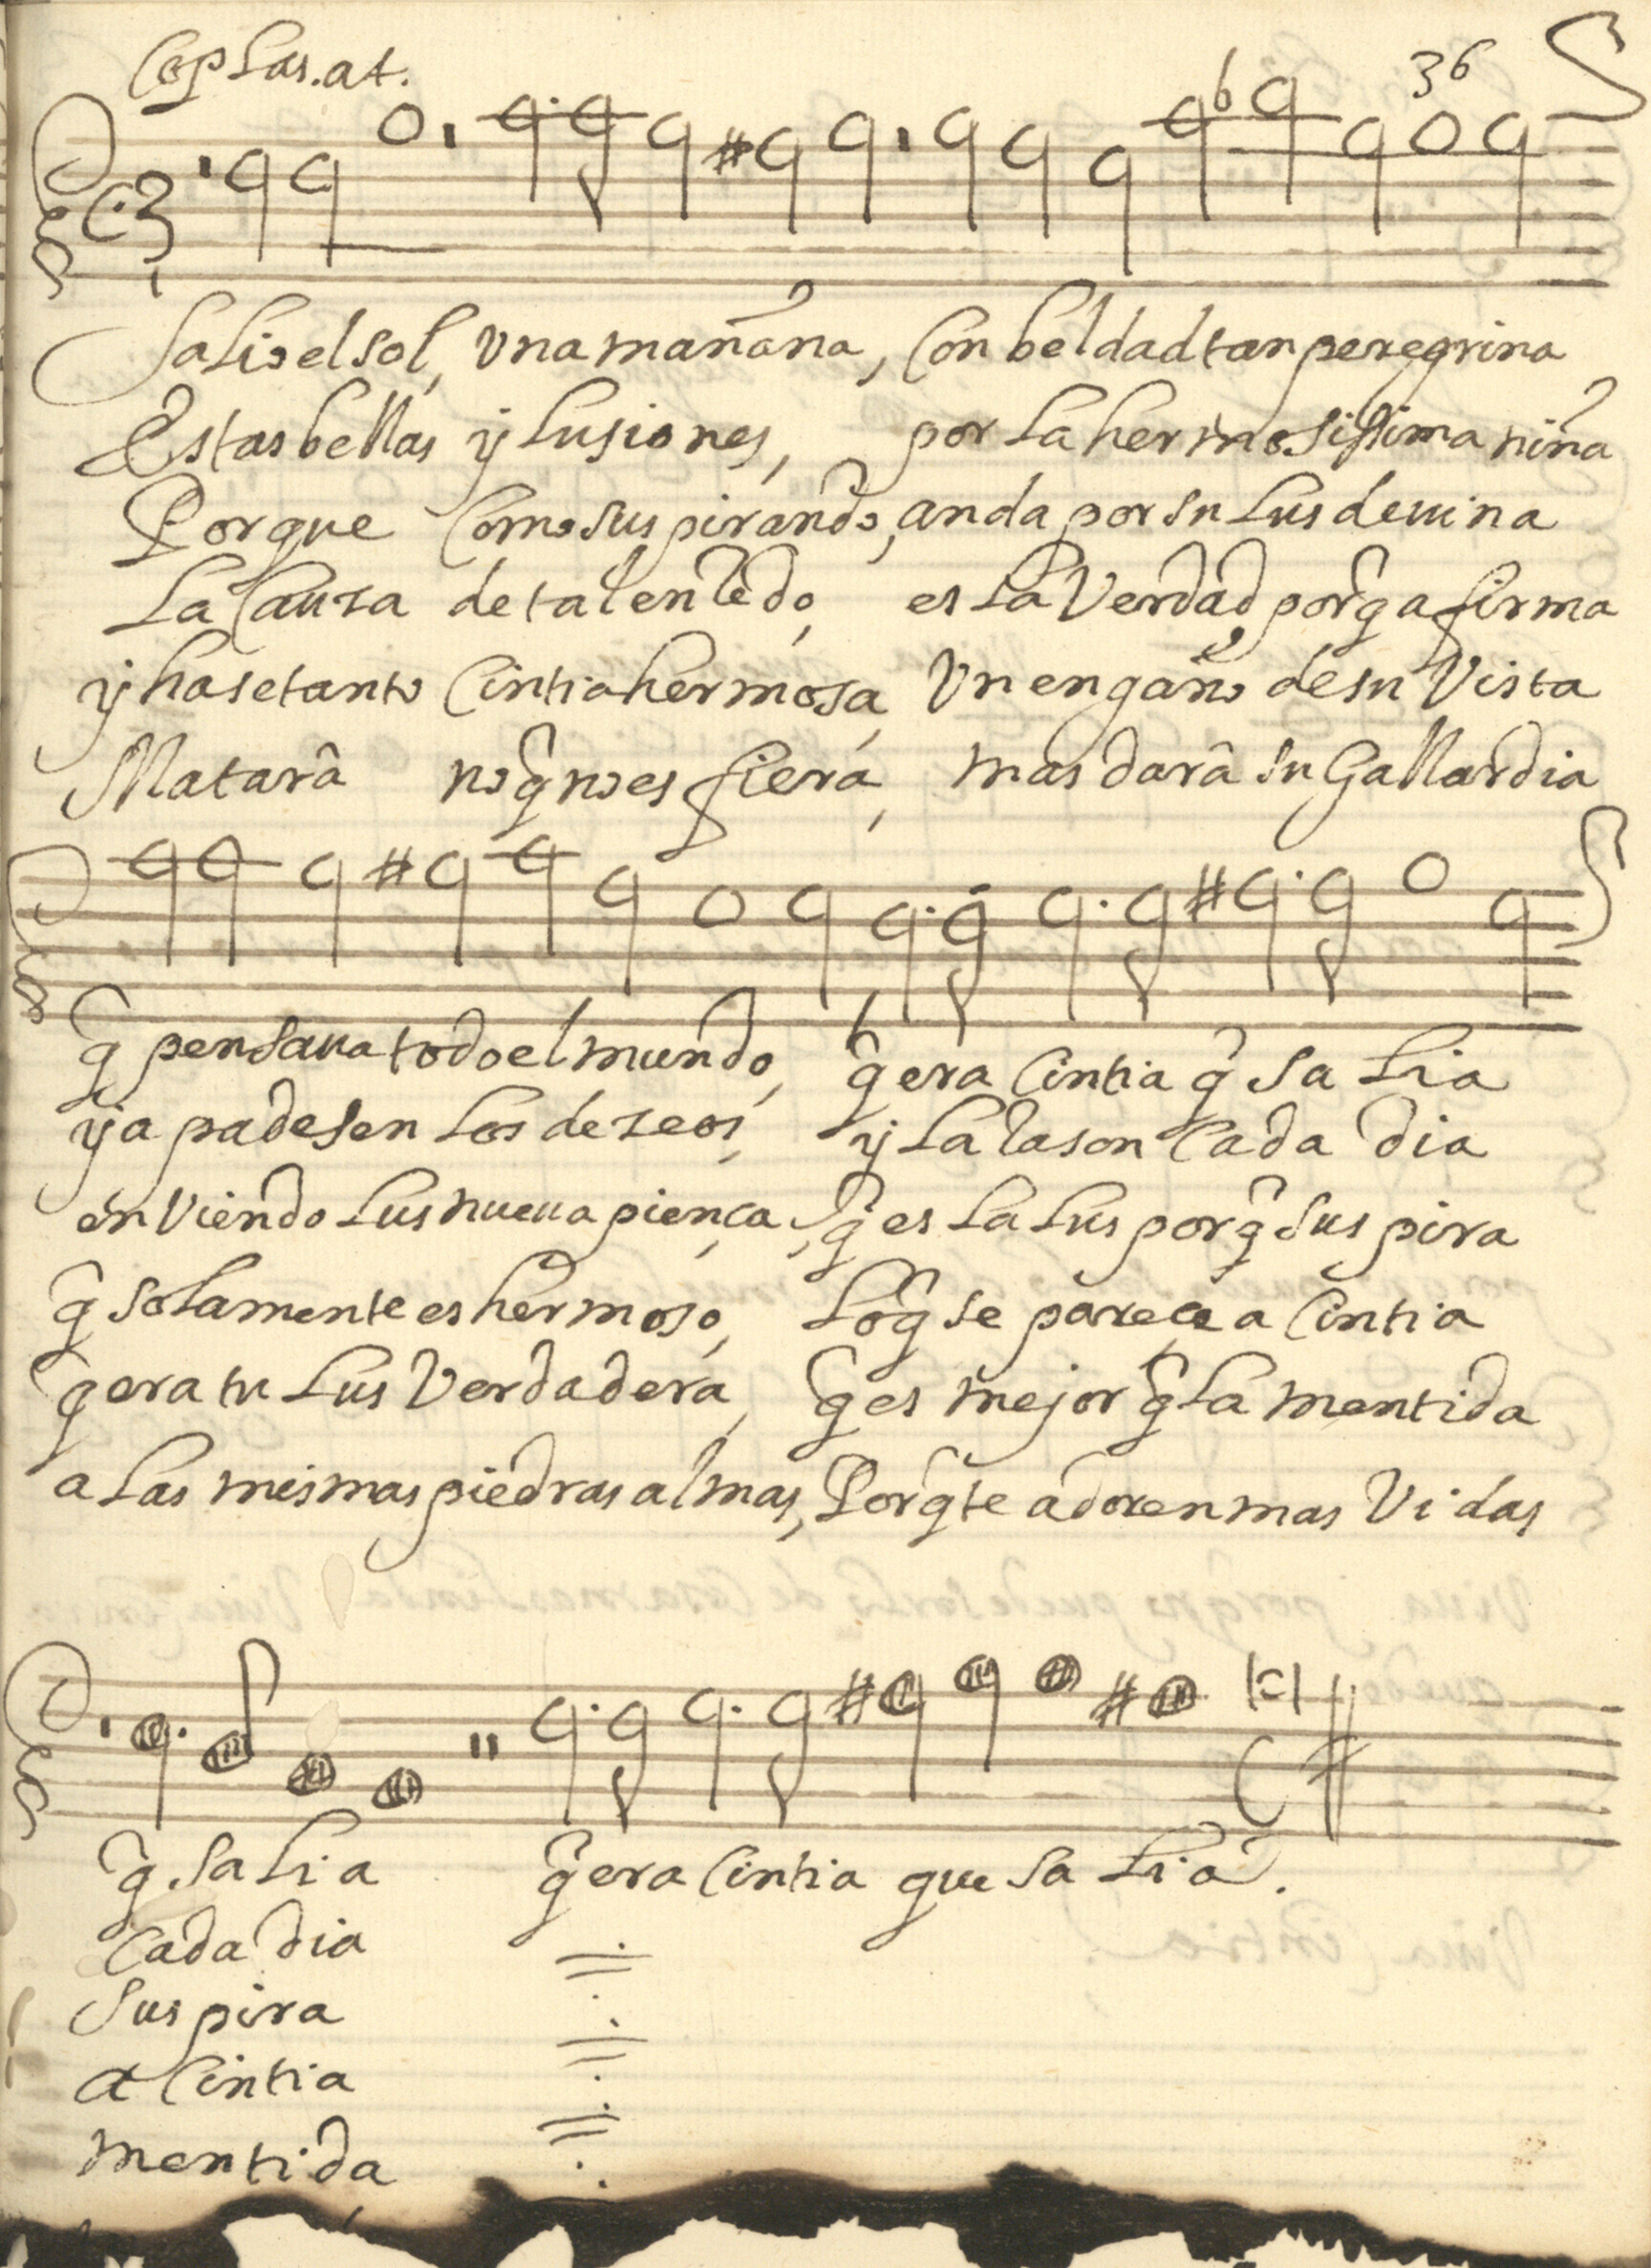 Coplas. a 4.
36
Salio el sol, Una mañana, Con beldad tan peregrina
Estas bellas ylusiones, por la hermosissima niña
Porque Como suspirando, anda por su lus deuina
La Cauza de tal enrredo, es la Verdad porq̂ afirma
y hase tanto Cintia hermosa, Un engaño de su Vista
Matarâ no q̂ no es fiera, mas darâ su Gallardia
q̂ pensaua todo el mundo, q̂ era Cintia q̂ Salia
ya padesen los dezeos, y la rason Cada dia
en Viendo lus nueua piença, q̂ es la lus porq̂ Suspira
q̂ solamente es hermoso, lo q̂ se parece a Cintia
q̂ era tu lus Verdadera, q̂ es mejor q̂ la mentida
a las mismas piedras almas, Porq̂ te adoren mas Vidas
q̂ Salia q̂ era Cintia que Salia.
Cada dia
Suspira
a Cintia
mentida